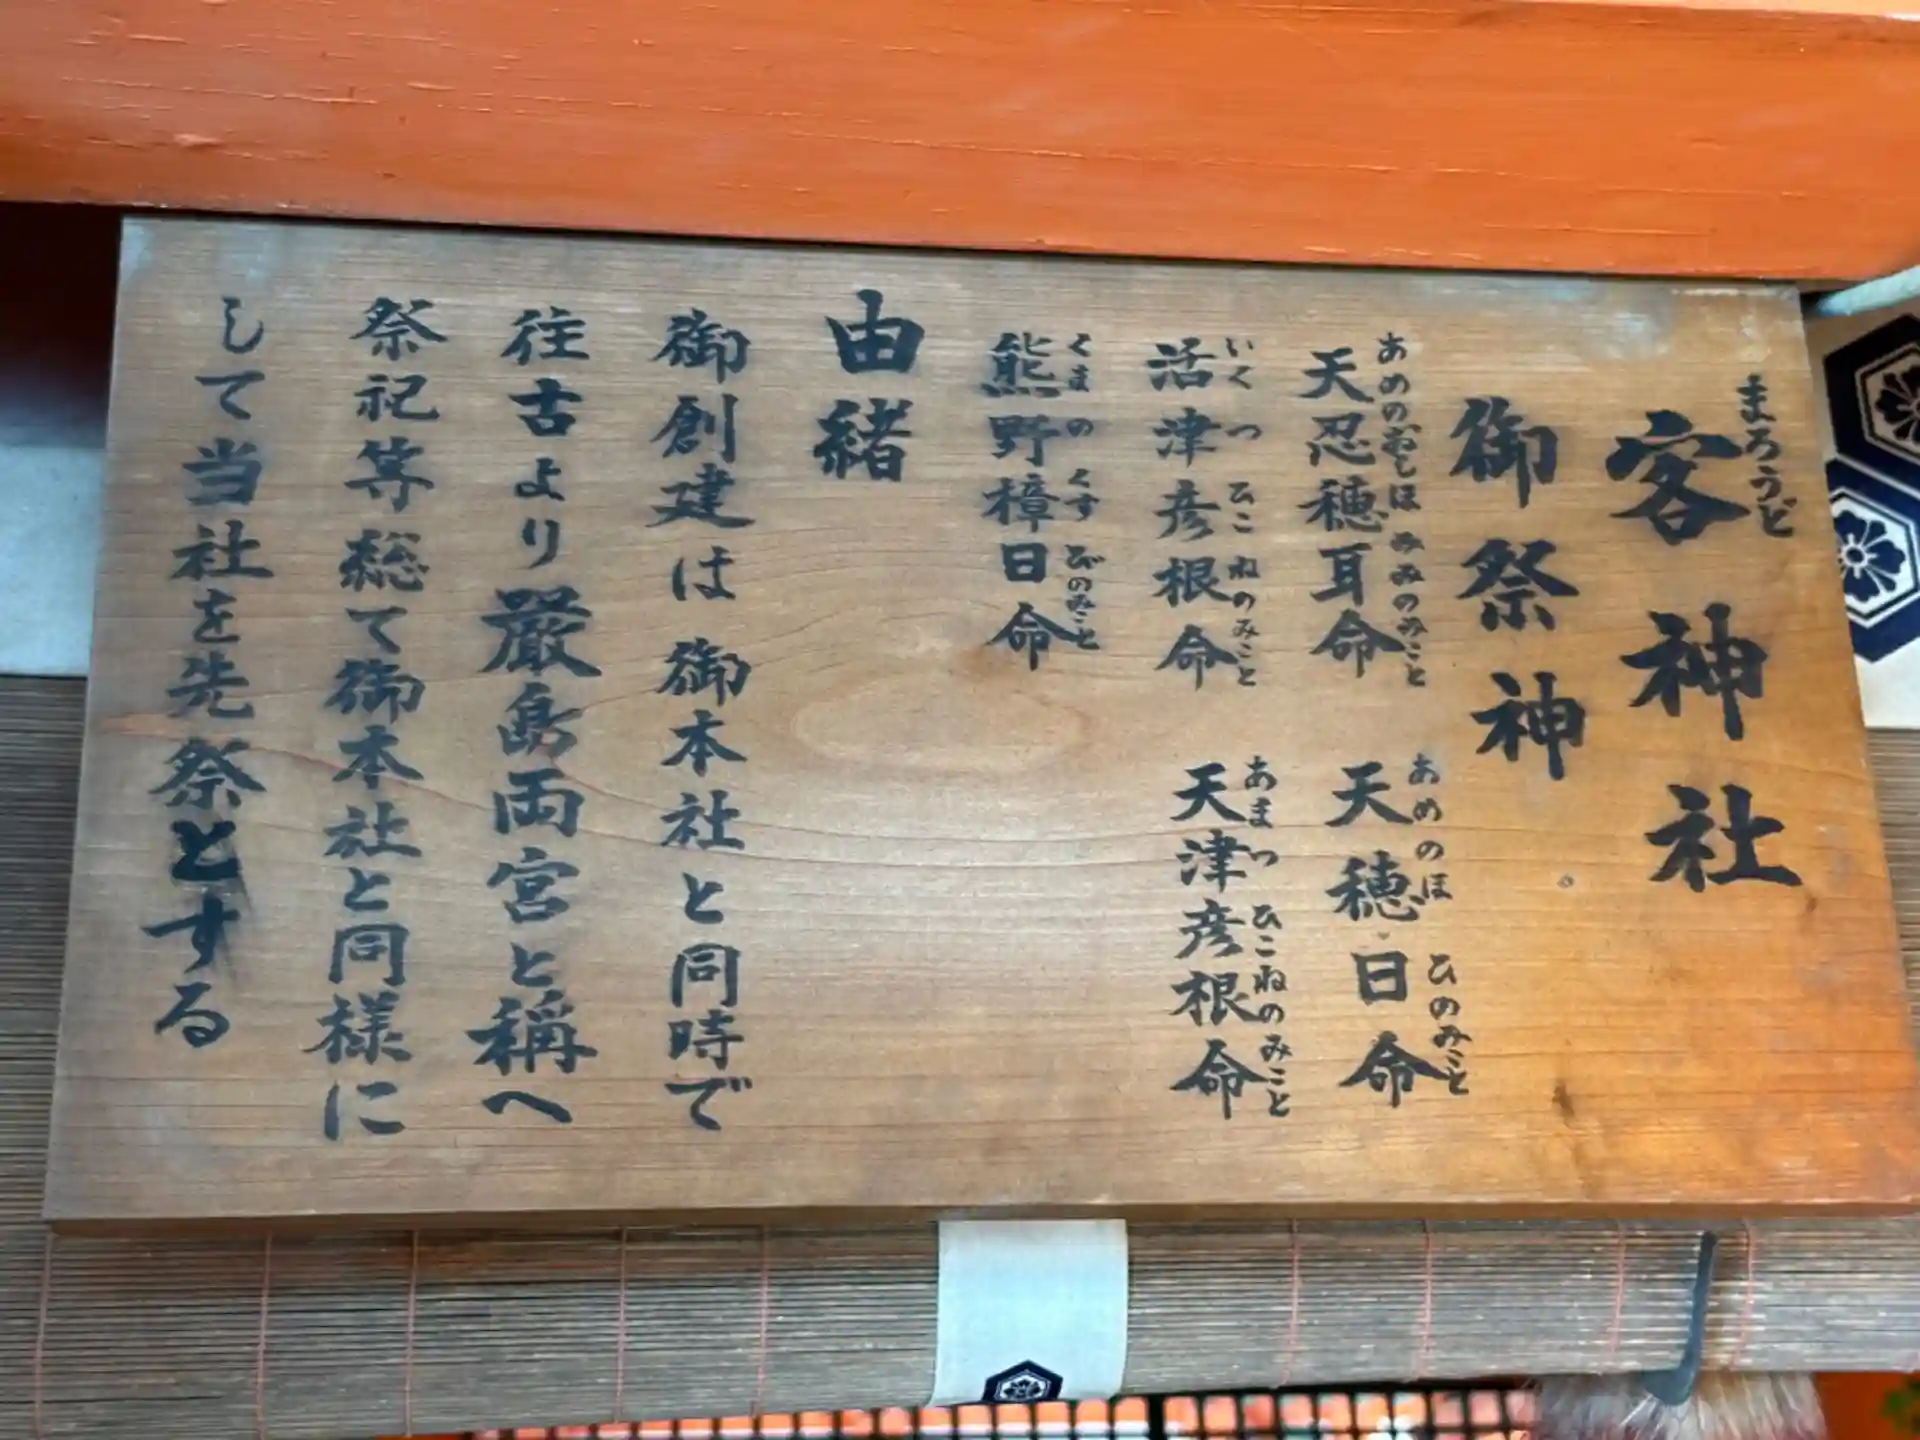 客神社
まろうど
御祭神
天忍穂耳命
あめのおしほみみのみこと
天穂日命
あめのほひのみこと
活津彦根命
いくつひこねのみこと
天津彦根命
あまつひこねのみこと
熊野樟日命
くまのくすびのみこと
由緒
御創建は御本社と同時で
往古より厳島両宮と稱へ
祭祀等総て御本社と同様に
して当社を先祭とする